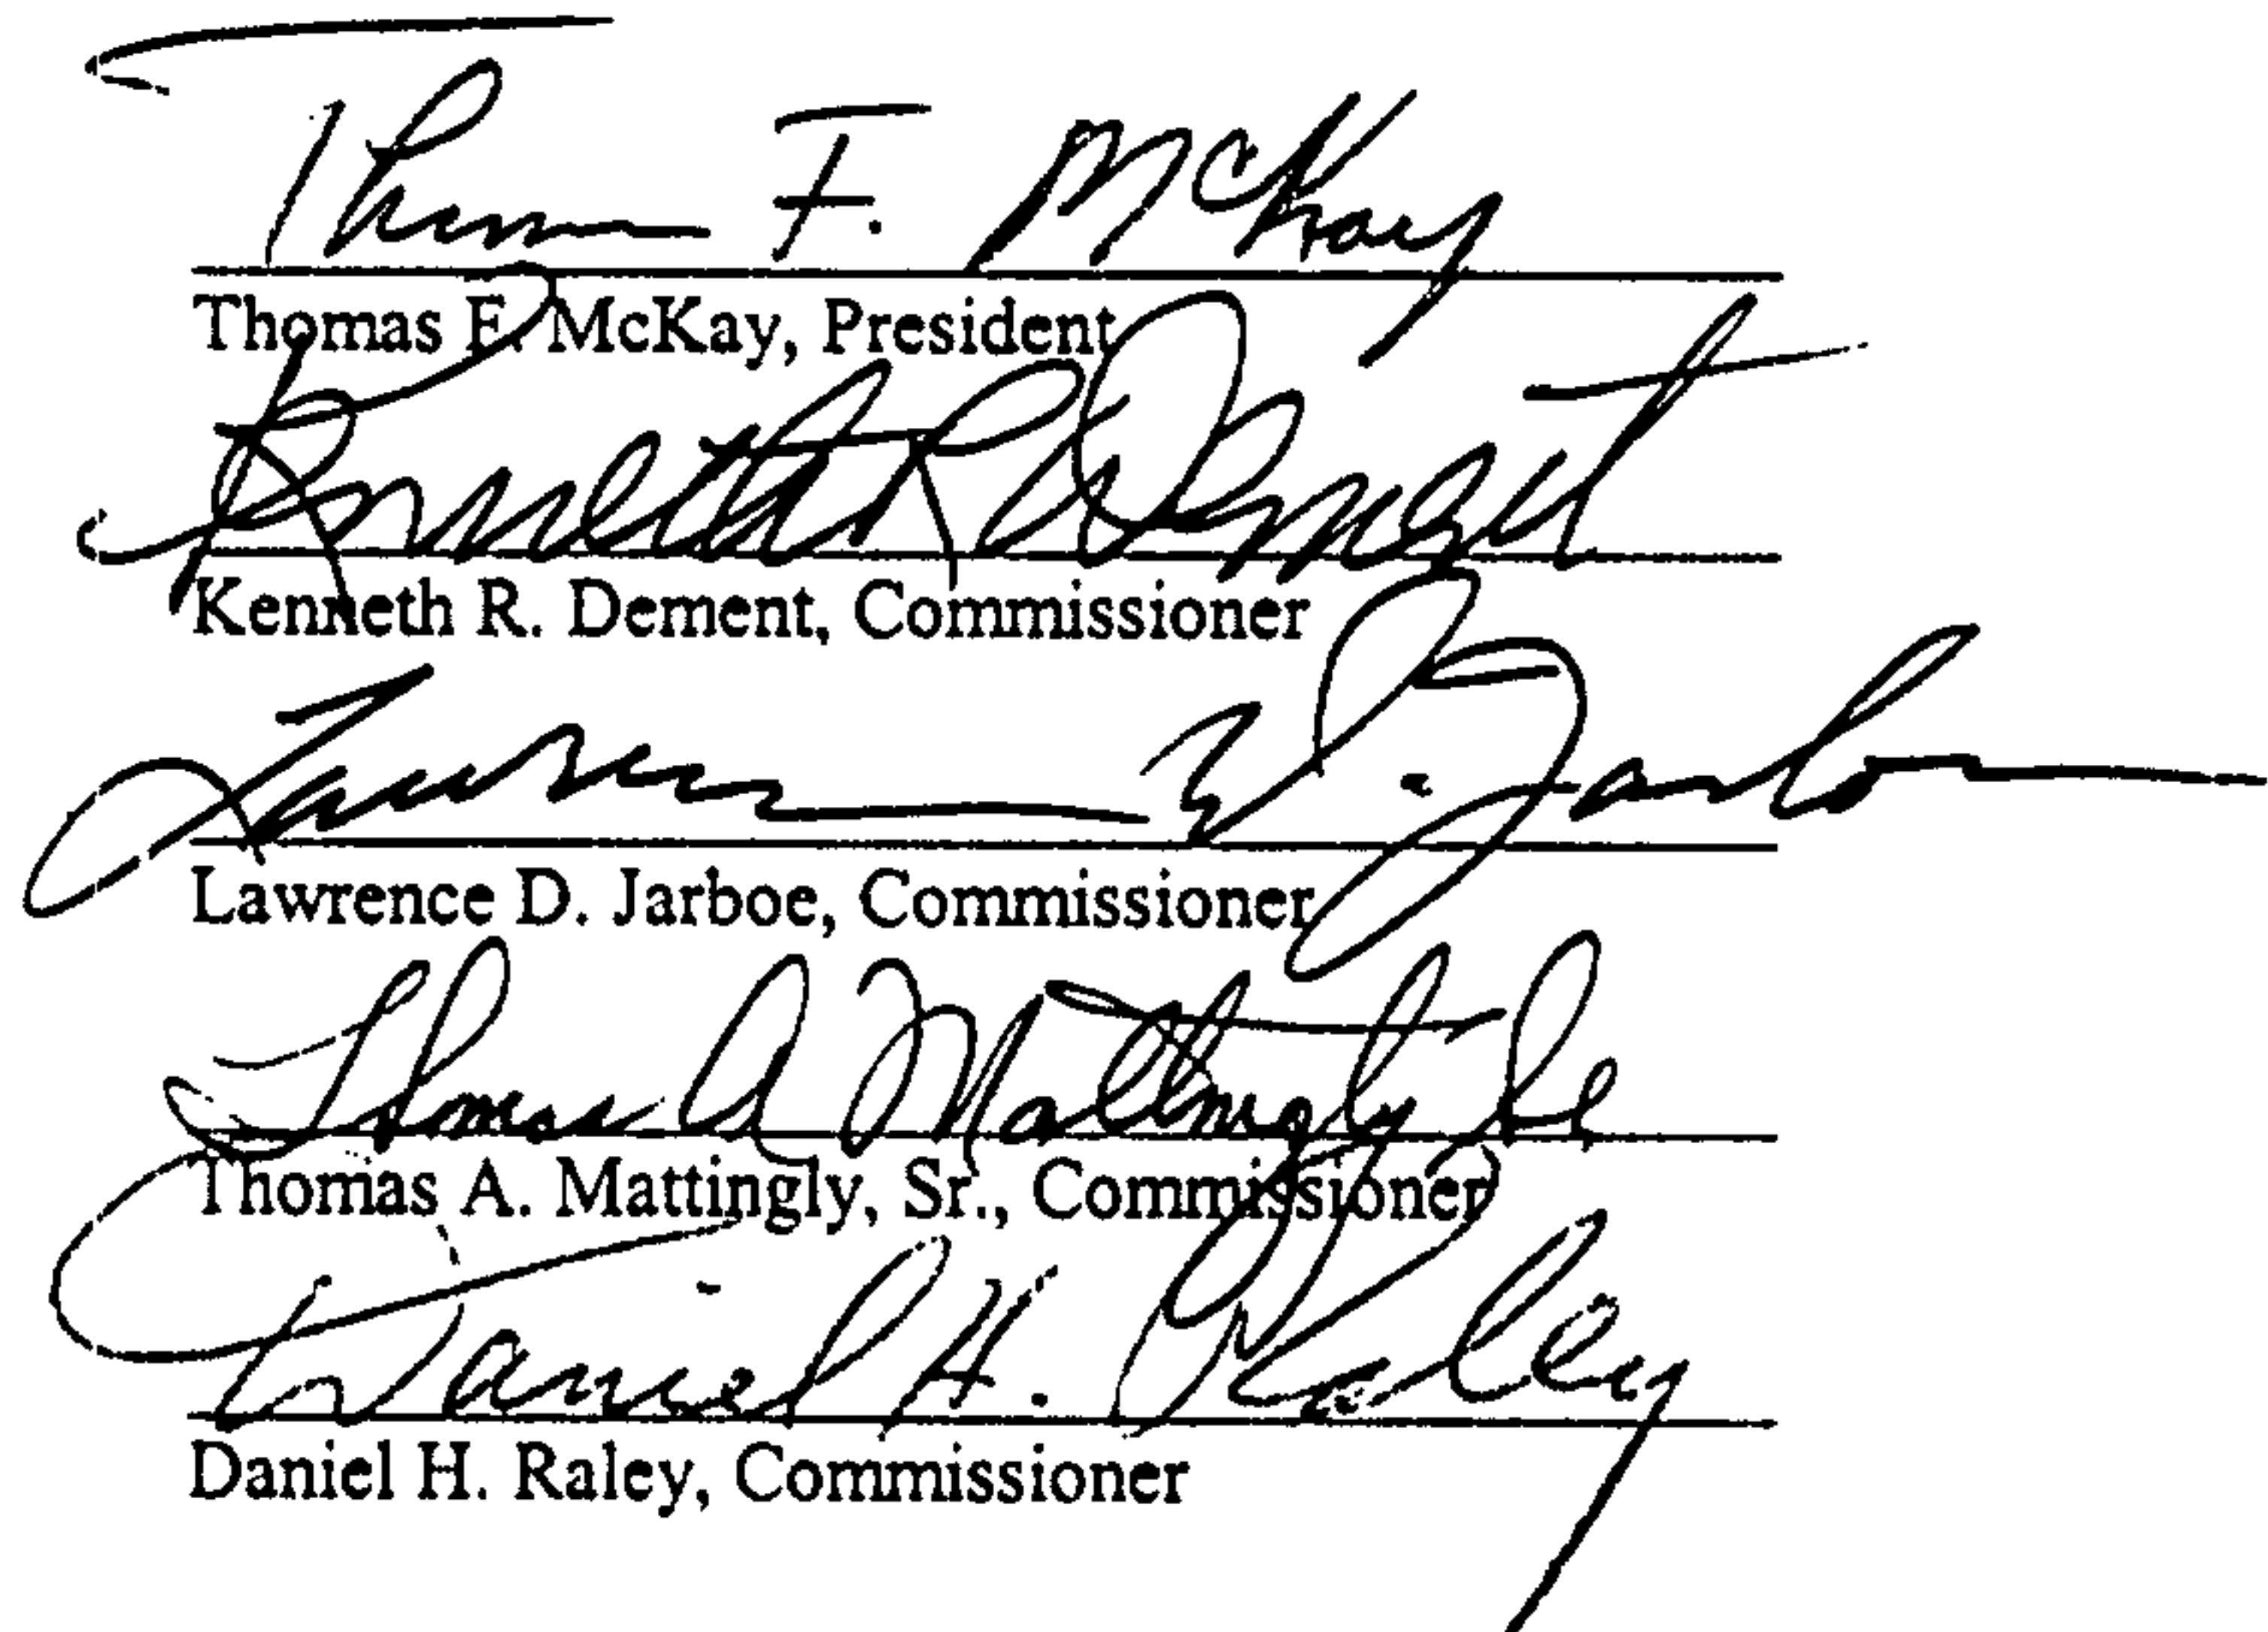 Thomas F. McKay
Thomas F. McKay, President
Kenneth R. Dement
Kenneth R. Dement, Commissioner
Lawrence D. Jarboe
Lawrence D. Jarboe, Commissioner
Thomas A Mattingly Sr
Thomas A. Mattingly, Sr., Commissioner
Daniel H. Raley
Daniel H. Raley, Commissioner